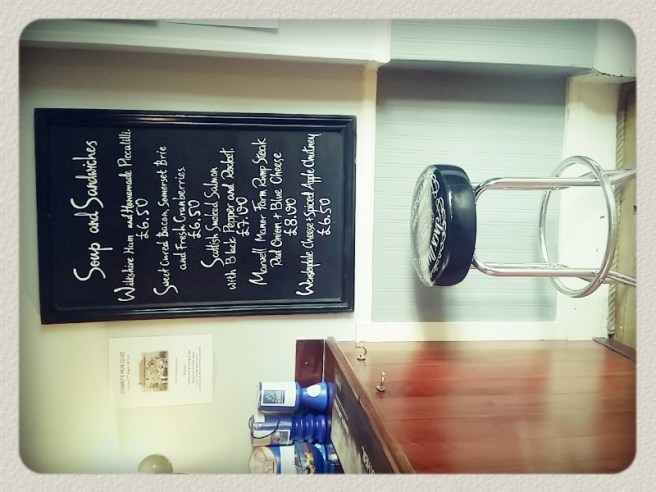 Soup and Sandwiches
Wiltshire Ham and Homemade Piccalilli
£6.50
Sweet Cured Bacon, Somerset Brie
and Fresh Cranberries
£6.50
Scottish Smoked Salmon
with Black Pepper and Rocket.
£7.90
Maxwell Manor Farm Rump Steak
Red Onion + Blue Cheese
£8.90
Wensleydale Cheese + Spiced Apple Chutney
£6.50
CHARITY PUB QUIZ